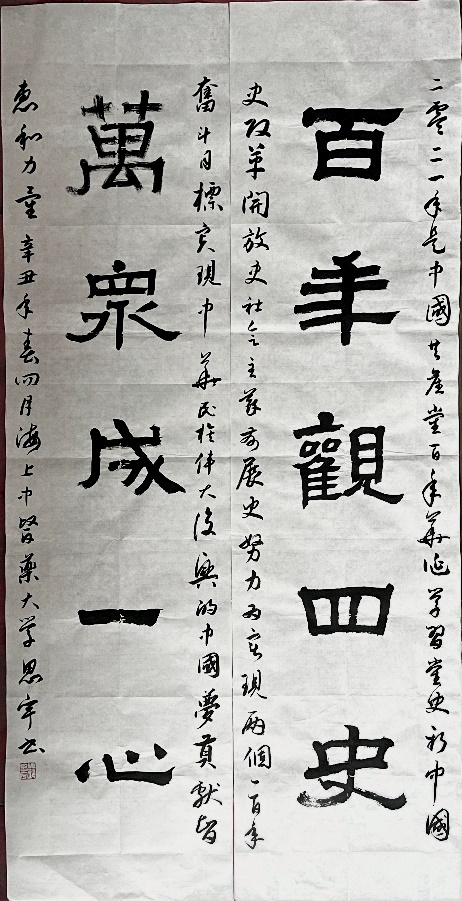 二零二一年是中國共產黨百年華誕學習黨史新中國
百年觀四史
史改革開放史社会主義發展史努力為實現兩個一百年
奮斗目標實現中華民族偉大復興的中國夢貢獻智
萬眾成一心
惠和力量辛丑年春四月海上中醫藥大學思宇书